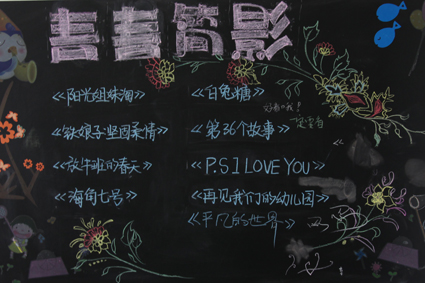 青春剪影
《阳光姐妹淘》
《铁娘子坚固柔情》
《放牛班的春天》
《海角七号》
《白兔糖》
《第36个故事》
《P.S I LOVE YOU》
《再见我们的幼儿园》
《平凡的世界》